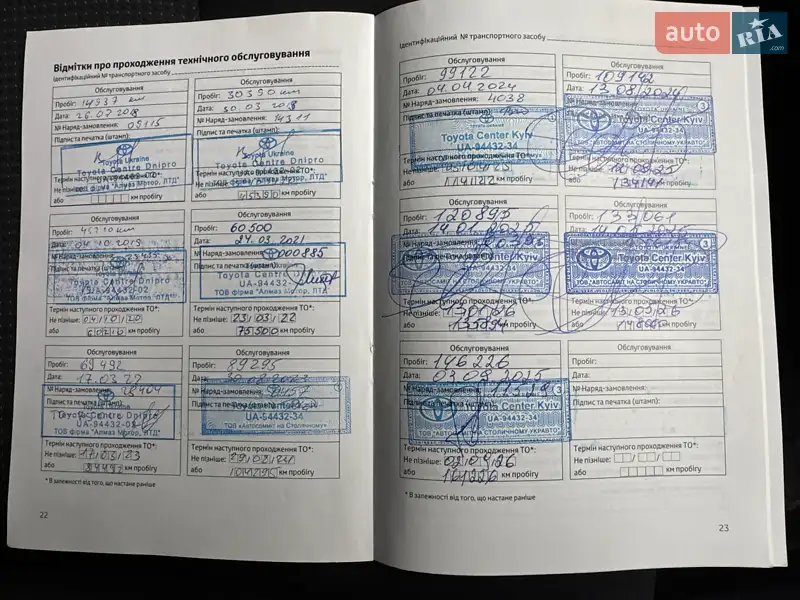 auto RIA
Відмітки про проходження технічного обслуговування
Ідентифікаційний № транспортного засобу
Обслуговування
Пробіг: 14937 км
Дата: 26.07.2018
№ Наряд-замовлення: 09115
Підпис та печатка (штамп):
Toyota Ukraine
Toyota Centre Dnipro
ТОВ фірма "Алмаз Мотор, ЛТД"
Термін наступного проходження ТО*:
Не пізніше:
або км пробігу
Обслуговування
Пробіг: 30390 км
Дата: 30.03
№ Наряд-замовлення: 14311
Підпис та печатка (штамп):
Toyota Ukraine
Toyota Centre Dnipro
ТОВ фірма "Алмаз Мотор, ЛТД"
Термін наступного проходження ТО*:
Не пізніше:
або 45390 км пробігу
Обслуговування
Пробіг: 45710 км
Дата: 04.10.2019
№ Наряд-замовлення:
Підпис та печатка (штамп):
Toyota Centre Dnipro
ТОВ фірма "Алмаз Мотор, ЛТД"
Термін наступного проходження ТО*:
Не пізніше: 04/10/20
або км пробігу
Обслуговування
Пробіг: 60500
Дата: 24.03.2021
№ Наряд-замовлення: 0000885
Підпис та печатка (штамп):
Toyota Centre Dnipro
UA-94432-02
ТОВ фірма "Алмаз Мотор, ЛТД"
Термін наступного проходження ТО*:
Не пізніше: 23/03/22
або 75500 км пробігу
Обслуговування
Пробіг: 69492
Дата: 17.03.22
№ Наряд-замовлення:
Підпис та печатка (штамп):
Toyota Centre Dnipro
UA-94432-02
ТОВ фірма "Алмаз Мотор, ЛТД"
Термін наступного проходження ТО*:
Не пізніше: 17/03/23
або 84492 км пробігу
Обслуговування
Пробіг: 89295
Дата: 30.08.2023
№ Наряд-замовлення:
Підпис та печатка (штамп):
UA-94432-34
ТОВ «Автосаміт на Столичному»
Термін наступного проходження ТО*:
Не пізніше:
або 104295 км пробігу
* В залежності від того, що настане раніше
22
Ідентифікаційний № транспортного засобу
Обслуговування
Пробіг: 99122
Дата: 04.04.2024
№ Наряд-замовлення: 4038
Підпис та печатка (штамп):
Toyota Center Kyiv
UA-94432-34
Термін наступного проходження ТО*:
Не пізніше:
або 114122 км пробігу
Обслуговування
Пробіг: 109142
Дата: 13/08/2024
№ Наряд-замовлення:
Toyota Center Kyiv
UA-94432-34
ТОВ "АВТОСАМІТ НА СТОЛИЧНОМУ УКРАВТО"
Термін наступного проходження ТО*:
Не пізніше:
або км пробігу
Обслуговування
Пробіг: 120895
Дата: 14.01.2025
№ Наряд-замовлення:
Toyota Center Kyiv
UA-94432-34
ТОВ "АВТОСАМІТ НА СТОЛИЧНОМУ УКРАВТО"
Термін наступного проходження ТО*:
Не пізніше: 13.01.26
або км пробігу
Обслуговування
Пробіг: 133061
Дата:
Toyota Center Kyiv
UA-94432-34
ТОВ "АВТОСАМІТ НА СТОЛИЧНОМУ УКРАВТО"
Термін наступного проходження ТО*:
Не пізніше:
або км пробігу
Обслуговування
Пробіг: 146226
Дата: 03.09.2025
№ Наряд-замовлення:
Підпис та печатка (штамп):
Toyota Center Kyiv
UA-94432-34
ТОВ "АВТОСАМІТ НА СТОЛИЧНОМУ УКРАВТО"
Термін наступного проходження ТО*:
Не пізніше: 02/09/26
або 161226 км пробігу
Обслуговування
Пробіг:
Дата:
№ Наряд-замовлення:
Підпис та печатка (штамп):
Термін наступного проходження ТО*:
Не пізніше:
або км пробігу
* В залежності від того, що настане раніше
23